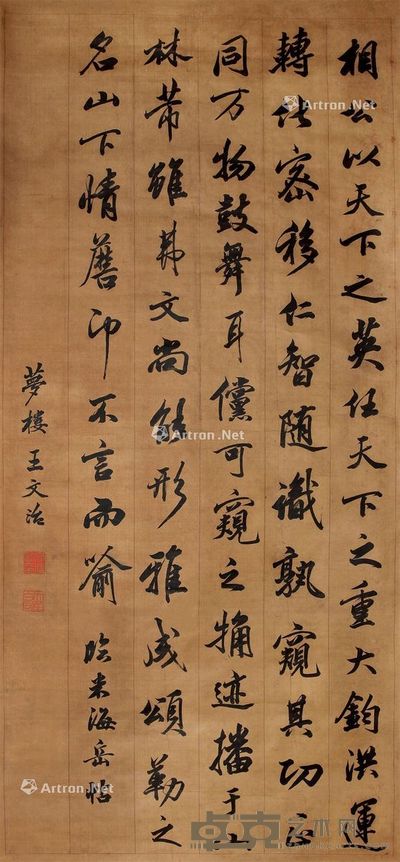 相公以天下之英任天下之重大鈞洪運
轉化密移仁智随識孰窺其功正
同万物鼓舞耳儻可窺之迹播于山
林芾雖非文尚能形雅成頌勒之
名山下情不言而喻 臨米海岳帖
夢樓王文治
Artron.Net
Artron.Net
Artron.Net
Artron.Net
卓克艺术网